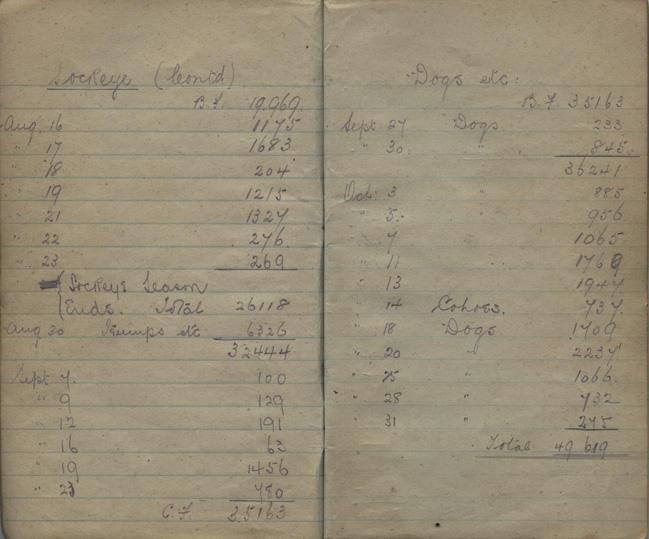 Sockeye (Contd)
B.F. 19,969.
Aug. 16 1175
" 17 1683
" 18 204
" 19 1215
" 21 1327
" 22 276.
" 23 269
Sockeye Season
Ends. Total 26118
Aug 30 Humps etc 6326
32444
Sept 7. 100
" 9 129
" 12 191
" 16 63
" 19 1456
" 23 780
C.F. 35163
Dogs etc:
B.F. 35163
Sept 27 Dogs. 233
" 30 " 845.
36241
Oct: 3 " 885
" 5. " 956
" 7 " 1065
" 11 " 1769
" 13 " 1947
" 14 Cohoes. 737.
" 18 Dogs 1709
" 20 " 2237
" 25 " 1066.
" 28 " 732
" 31 " 275
Total 49619